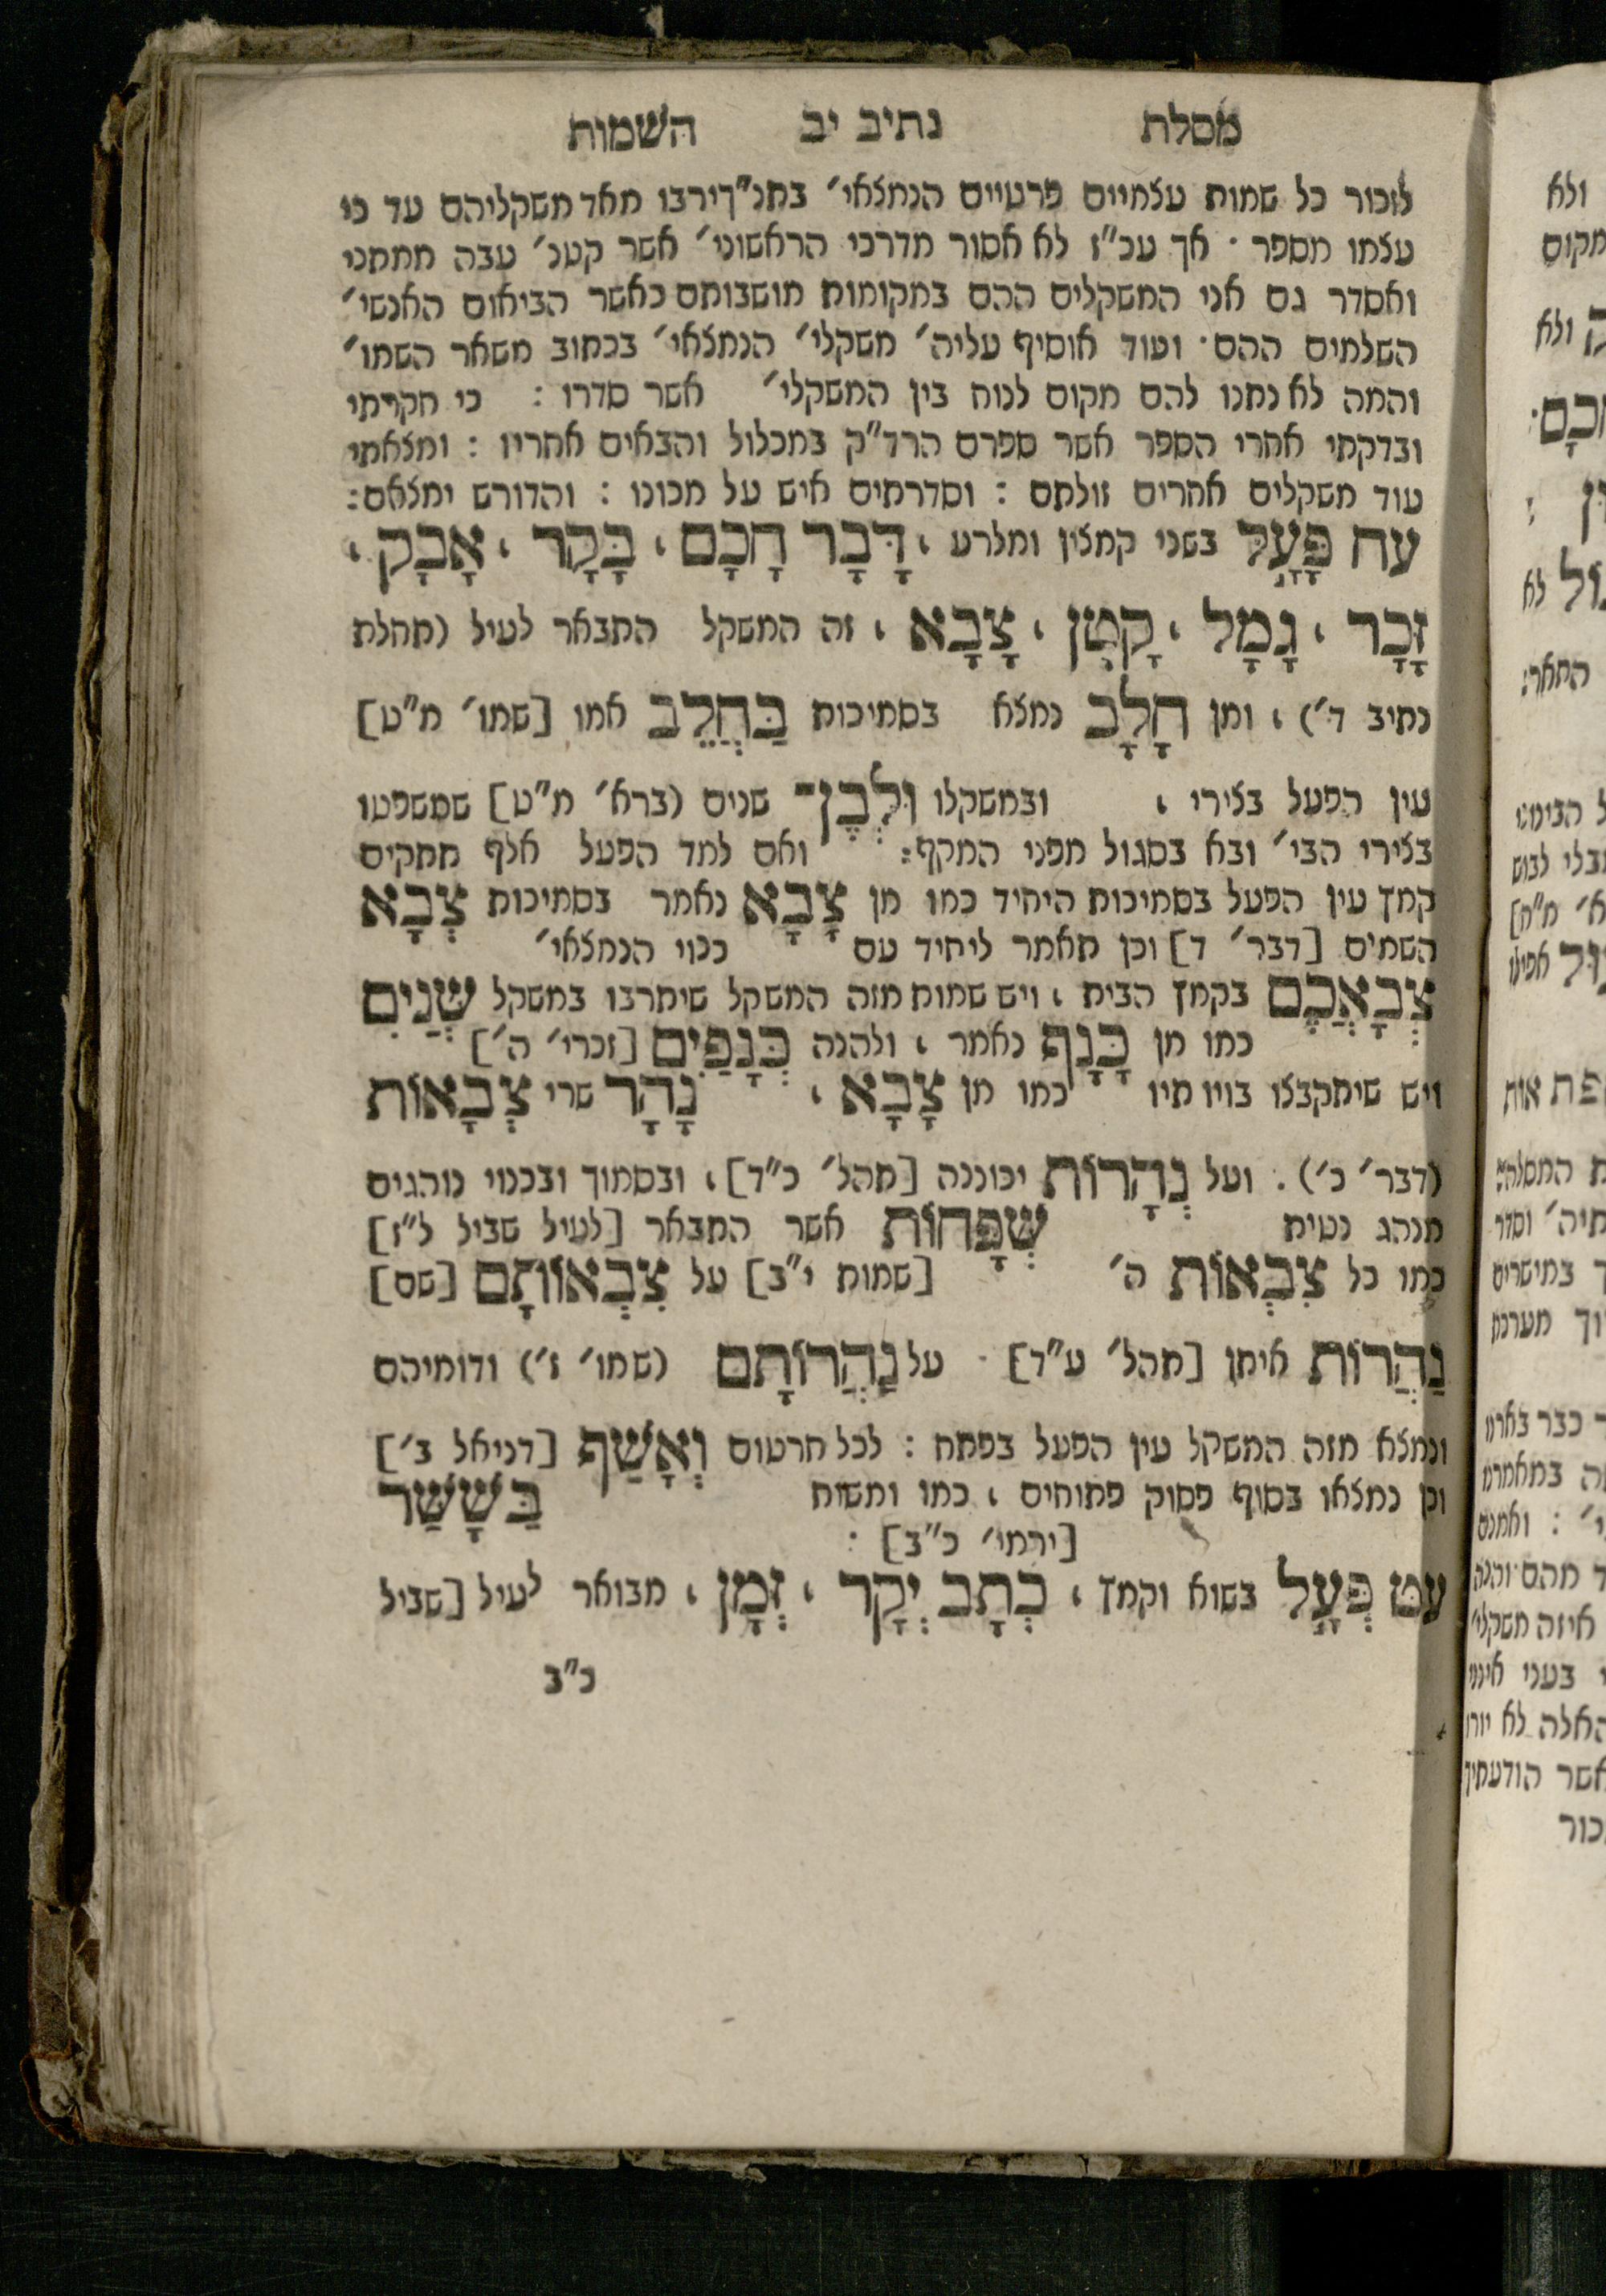 מסלת נתיב יב השמות
לזכור כל שמות עצמיים פרטיים הנמצאי׳ בתנ״ך ירבו מאד משקליהם עד כי
עצמו מספר · אך עכ״ז לא אסור מדרכי הראשוני׳ אשר קטנ׳ עבה ממתני
ואסדר גם אני המשקלים ההם במקומות מושבותם כאשר הביאום האנשי׳
השלמים ההם · ועוד אוסיף עליה׳ משקלי׳ הנמצאי׳ בכתוב משאר השמו׳
והמה לא נתנו להם מקום לנוח בין המשקלי׳ אשר סדרו : כי חקרתי
ובדקתי אחרי הספר אשר ספרם הרד״ק במכלול והבאים אחריו : ומצאתי
עוד משקלים אחרים זולתם : וסדרתים איש על מכונו : והדורש ימצאם:
עח פָּעָל בשני קמצין ומלרע , דָּבָר חָכָם , בָּקָר , אָבָק ,
זָכָר , גָמָל , קָטָן , צָבָא , זה המשקל התבאר לעיל (מחלת
נתיב ד׳) , ומן חָלָב נמצא בסמיכות בַּחֲלֵב אמו [שמו׳ מ״ט]
עין הפעל בצירי , ובמשקלו וּלְבֶן־ שנים (ברא׳ מ״ט] שמשפטו
בצירי הבי׳ ובא בסגול מפני המקף: ואם למד הפעל אלף תתקים
קמץ עין הפעל בסמיכות היחיד כמו מן צָבָא נאמר בסמיכות צְבָא
השמים [דבר׳ ד] וכן תאמר ליחיד עם כנוי הנמצאי׳
צְבָאֲכֶם בקמץ הבית , ויש שמות מזה המשקל שיתרבו במשקל שְׁנַיִם
כמו מן כָּנָף נאמר , ולהנה כְּנָפַיִם [זכרי׳ ה׳]
ויש שיתקבצו בויו תיו כמו מן צָבָא , נָהָר שרי צְבָאוֹת
(דבר׳ כ׳) . ועל נְהָרוֹת יכוננה [תהל׳ כ״ד] , ובסמוך ובכנוי נוהגים
מנהג נטית שְׁפָחוֹת אשר התבאר [לעיל שביל ל״ז]
כמו כל צִבְאוֹת ה׳ [שמות י״ב] על צִבְאוֹתָם [שם]
נַהֲרוֹת איתן [תהל׳ ע״ד] · על נַהֲרוֹתָם (שמו׳ ז׳) ודומיהם
ונמצא מזה המשקל עין הפעל בפתח : לכל חרטום וְאָשַׁף [דניאל ב׳]
וכן נמצאו בסוף פסוק פתוחים , כמו ומשוח בַּשָׁשַׁר
[ירמי׳ כ״ב] :
עט פְּעָל בשוא וקמץ , כְּתָב יְקָר , זְמָן , מבואר לעיל [שביל
כ״ב